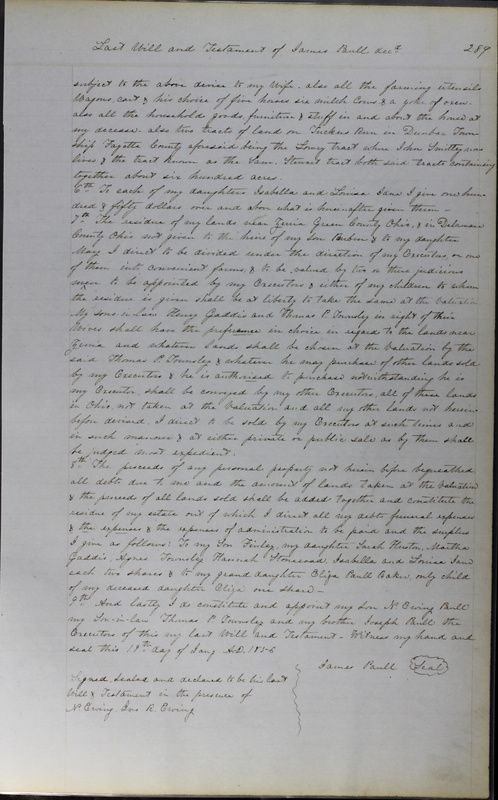 Last Will and Testament of James Paull decd. 289
subject to the above devise to my Wife. also all the farming utensils
Wagons, cart & his choice of five horses six milch Cows & a yoke of oxen.
also all the household goods, furniture & stuff in and about the house at
my decease. also two tracts of land on Tuckers Run in Dunbar Town-
ship Fayette County aforesaid being the Lowry tract where John Smitley now
lives & the tract known as the Saml. Stewart tract both said tracts containing
together about six hundred acres.
6th To each of my daughters Isabella and Louisa Jane I give one hun-
dred & fifty dollars over and above what is hereinafter given them—
7th The residue of my lands near Zenia Green County Ohio, & in Delaware
County Ohio not given to the heirs of my Son Reuben & to my daughter
Mary I direct to be divided under the direction of my Executors or one
of them into convenient farms, & to be valued by two or three judicious
men to be appointed by my Executors & either of my children to whom
the residue is given shall be at liberty to take the same at the valuation
My sons in law Henry Gaddis and Thomas P. Townsley in right of their
Wives shall have the preference in choice in regard to the lands near
Zenia and whatever lands shall be chosen at the valuation by the
said Thomas P. Townsley & whatever he may purchase of other lands sold
by my Executors & he is authorised to purchase notwithstanding he is
my Executor, shall be conveyed by my other Executors, all of these lands
in Ohio, not taken at the valuation and all my other lands not herein
before devised, I direct to be sold by my Executors at such times and
in such manner & at either private or public sale as by them shall
be judged most expedient.
8th The proceeds of any personal property not herein before bequeathed
all debts due to me and the amount of lands taken at the valuation
& the proceeds of all lands sold shall be added together and constitute the
residue of my estate out of which I direct all my debts funeral expenses
& the expenses & the expenses of administration to be paid and the surplus
I give as follows: To my Son Finley, my daughter Sarah Huston, Martha
Gaddis, Agnes Townsley Hannah Isabella and Louisa Jane
each two shares & to my grand daughter Eliza Paull Baker, only child
of my deceased daughter Eliza one share—
9th And lastly I do constitute and appoint my Son N. Ewing Paull
my Son-in-law Thomas P. Townsley and my brother Joseph Paull the
Executors of this my last Will and Testament— Witness my hand and
seal this 19th day of Jany A.D. 1856
James Paull Seal
Signed, sealed and declared to be his last
Will & Testament in the presence of
N. Ewing Jno R. Ewing